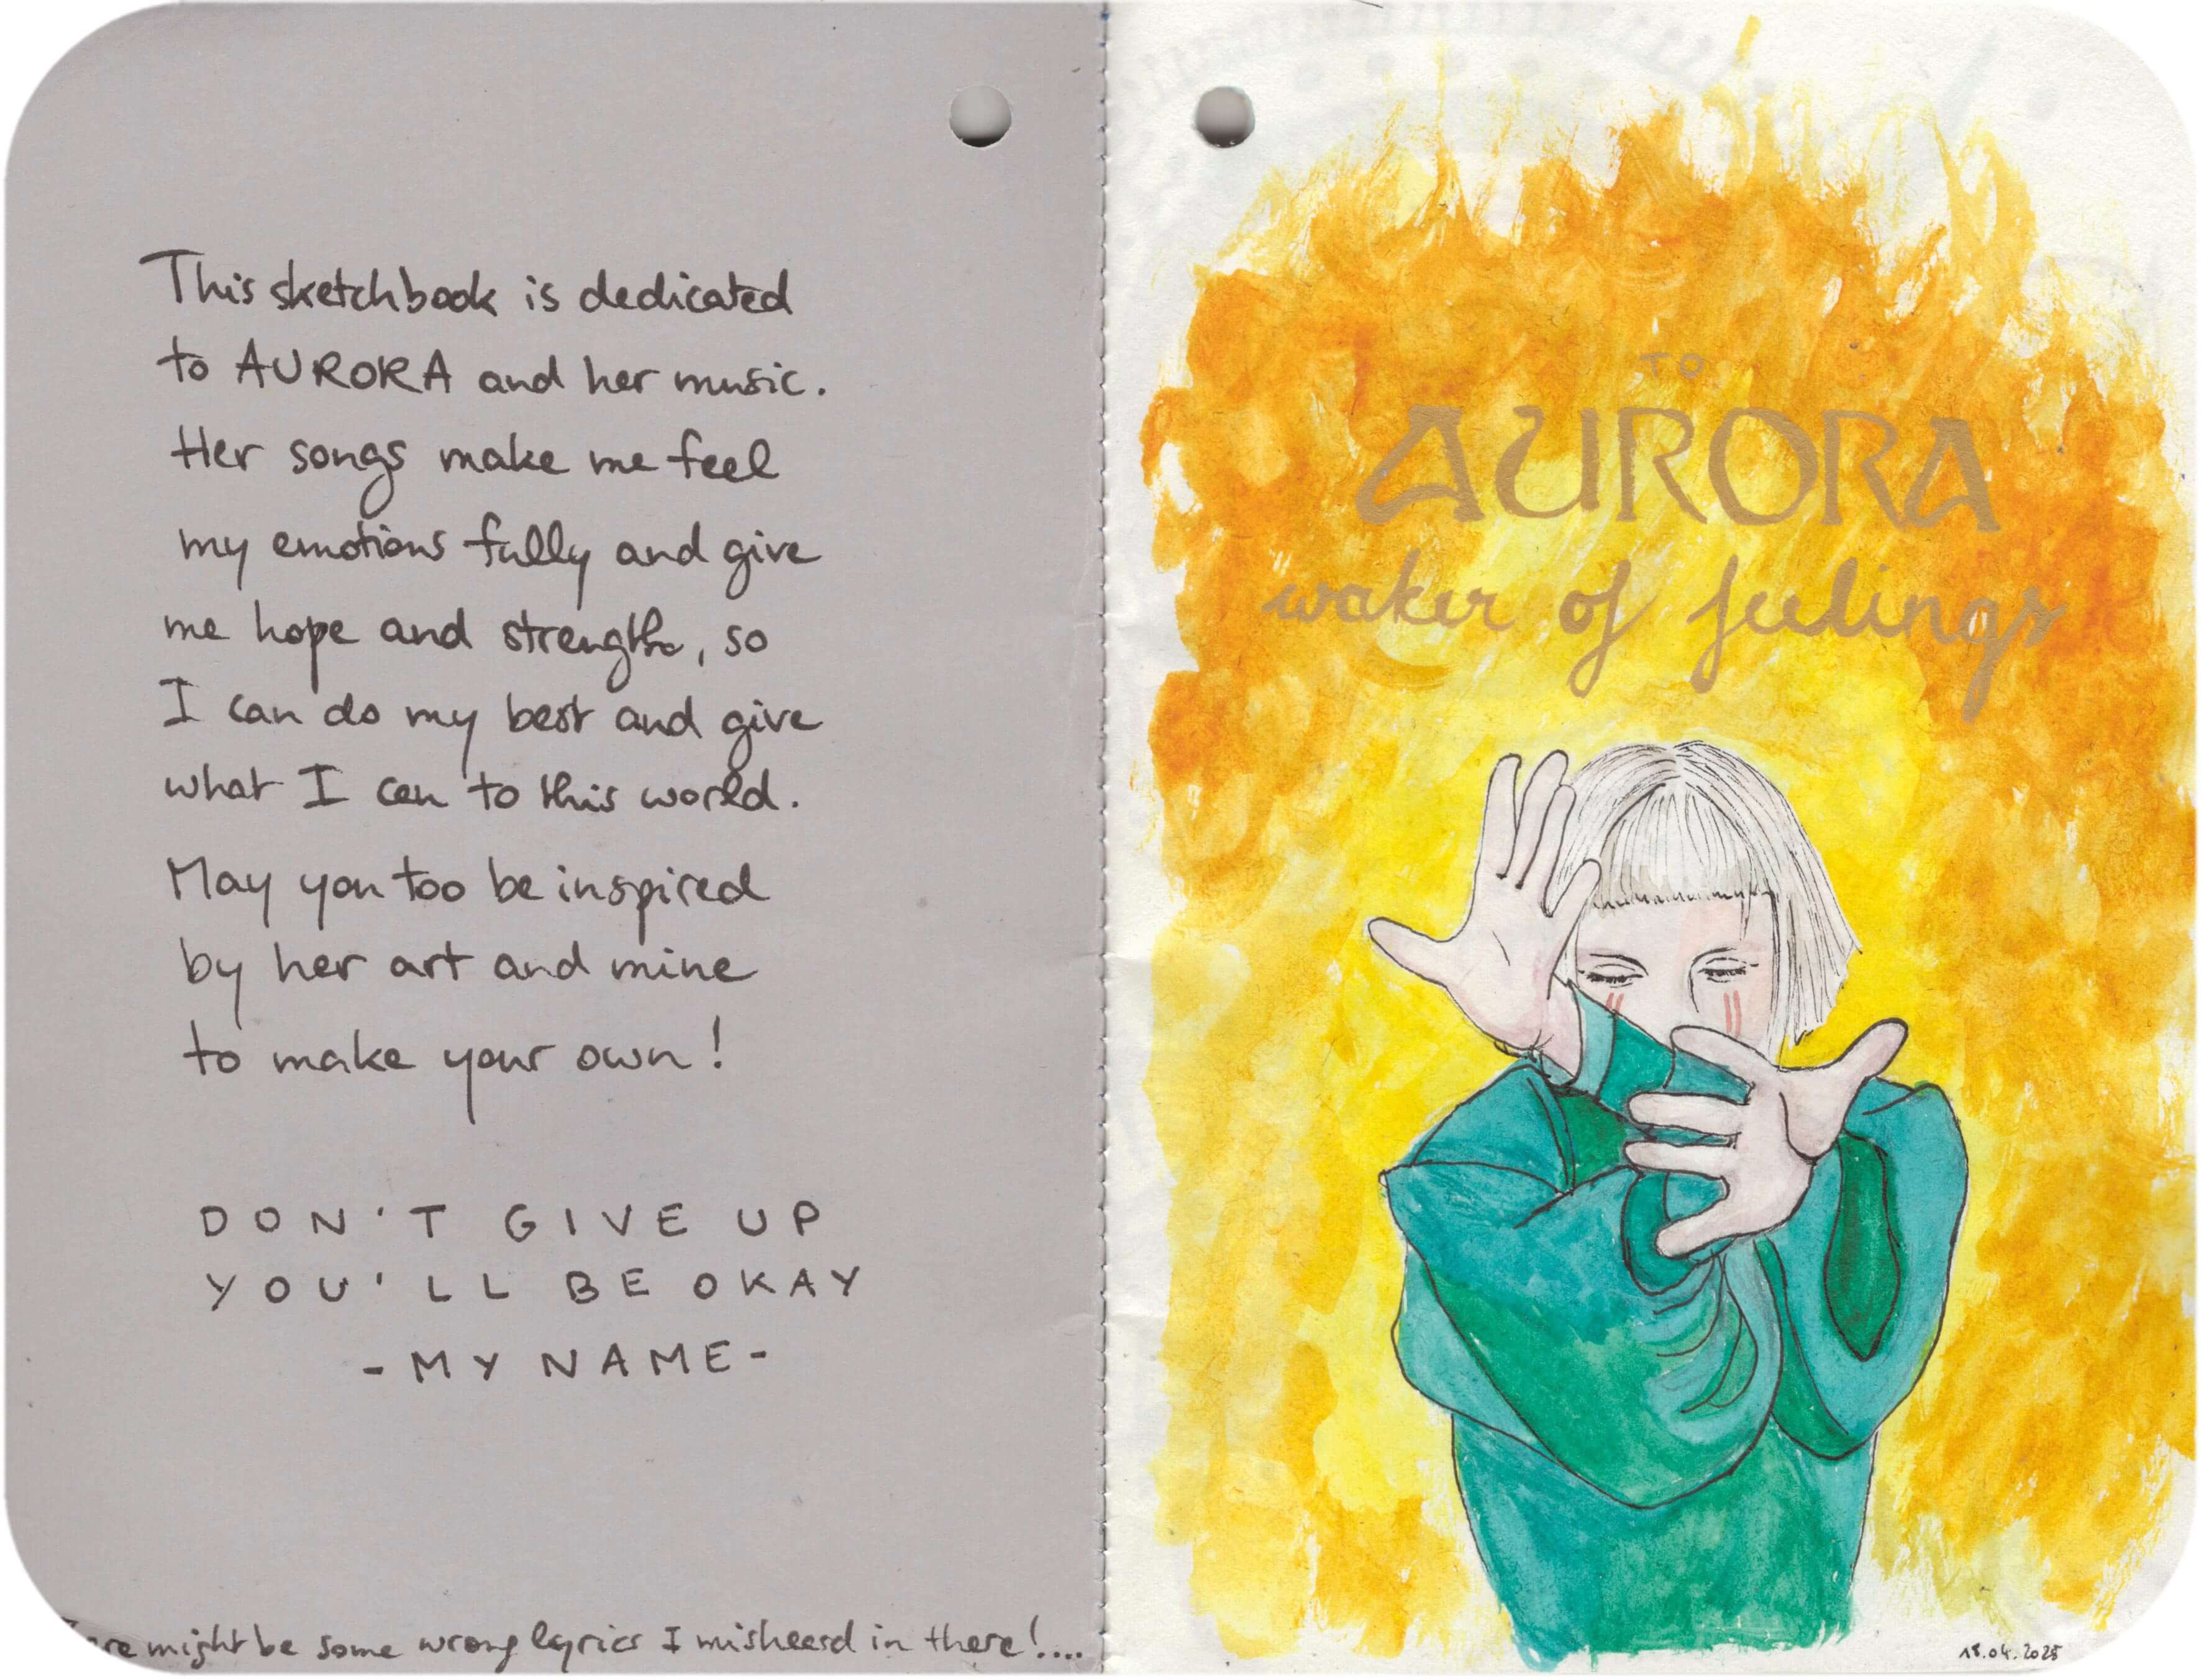 This sketchbook is dedicated
to AURORA and her music.
Her songs make me feel
my emotions fully and give
me hope and strength, so
I can do my best and give
what I can to this world.
May you too be inspired
by her art and mine
to make your own!
DON'T GIVE UP
YOU'LL BE OKAY
-MY NAME-
might be some wrong lyrics I misheard in there!....
TO
AURORA
waker of feelings
18.04.2025